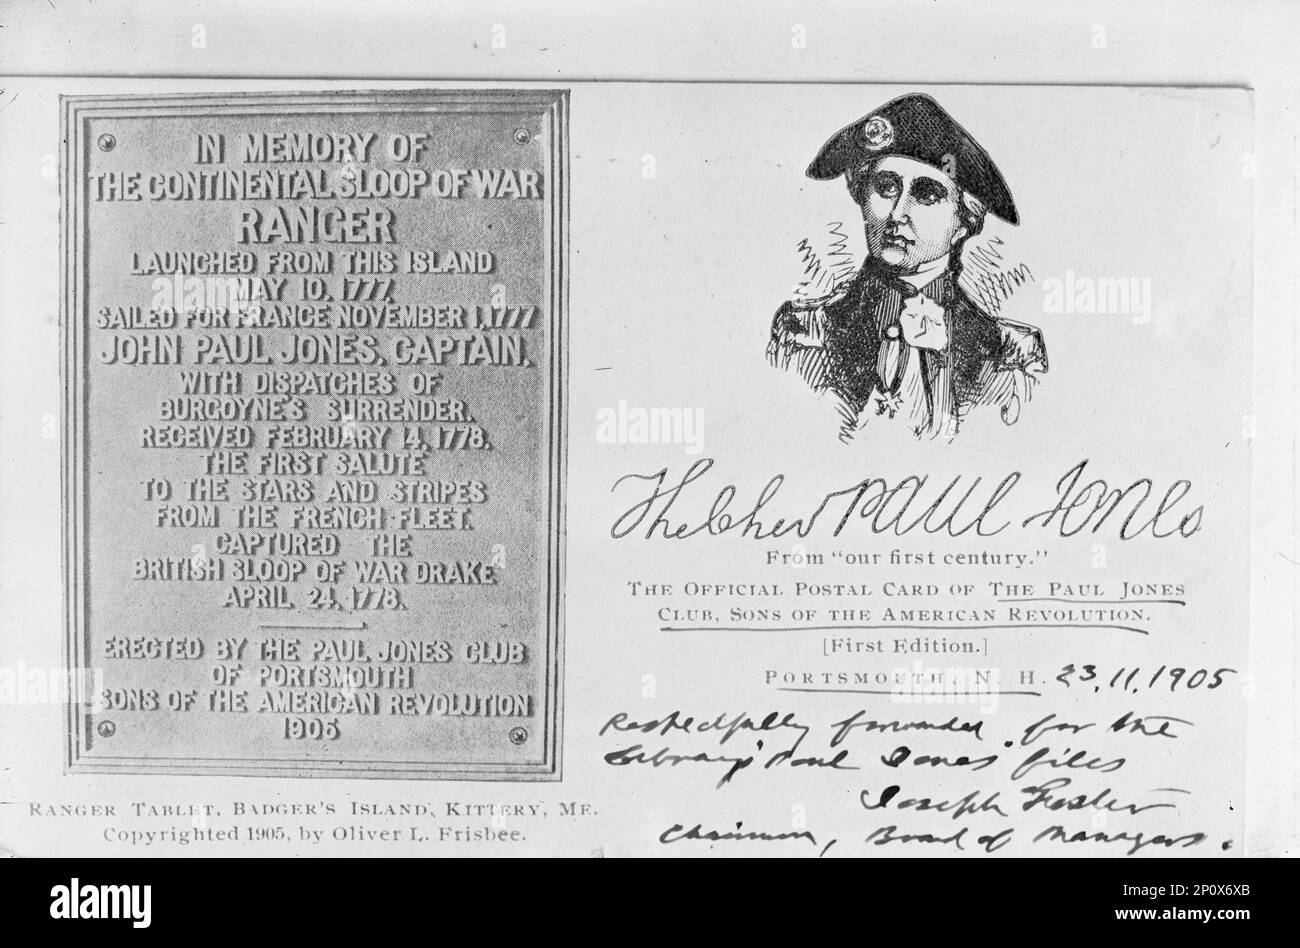 IN MEMORY OF
THE CONTINENTAL SLOOP OF WAR
RANGER
LAUNCHED FROM THIS ISLAND
MAY 10, 1777,
SAILED FOR FRANCE NOVEMBER 1, 1777
JOHN PAUL JONES, CAPTAIN,
WITH DISPATCHES OF
BURGOYNE'S SURRENDER.
RECEIVED FEBRUARY 14, 1778,
THE FIRST SALUTE
TO THE STARS AND STRIPES
FROM THE FRENCH FLEET.
CAPTURED THE
BRITISH SLOOP OF WAR DRAKE
APRIL 24, 1778.
ERECTED BY THE PAUL JONES CLUB
OF PORTSMOUTH
SONS OF THE AMERICAN REVOLUTION
1905
RANGER TABLET, BADGER'S ISLAND, KITTERY, ME.
Copyrighted 1905, by Oliver L. Frisbee.
TheChev PAUL JONES
From "our first century."
THE OFFICIAL POSTAL CARD OF THE PAUL JONES
CLUB, SONS OF THE AMERICAN REVOLUTION.
[First Edition.]
PORTSMOUTH, N. H. 23.11.1905
Respectfully forwarded for the
Library's "Paul Jones" files
Joseph Foster
Chairman, Board of Managers.
alamy
alamy
Image ID: 2P0X6XB
www.alamy.com